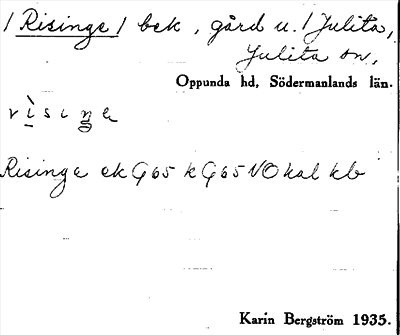 / Risinge / bek, gård u. / Julita,
Julita sn,
Oppunda hd, Södermanlands län.
rìsiŋe
Risinge ek G65 k G65 NO kal kb
Karin Bergström 1935.